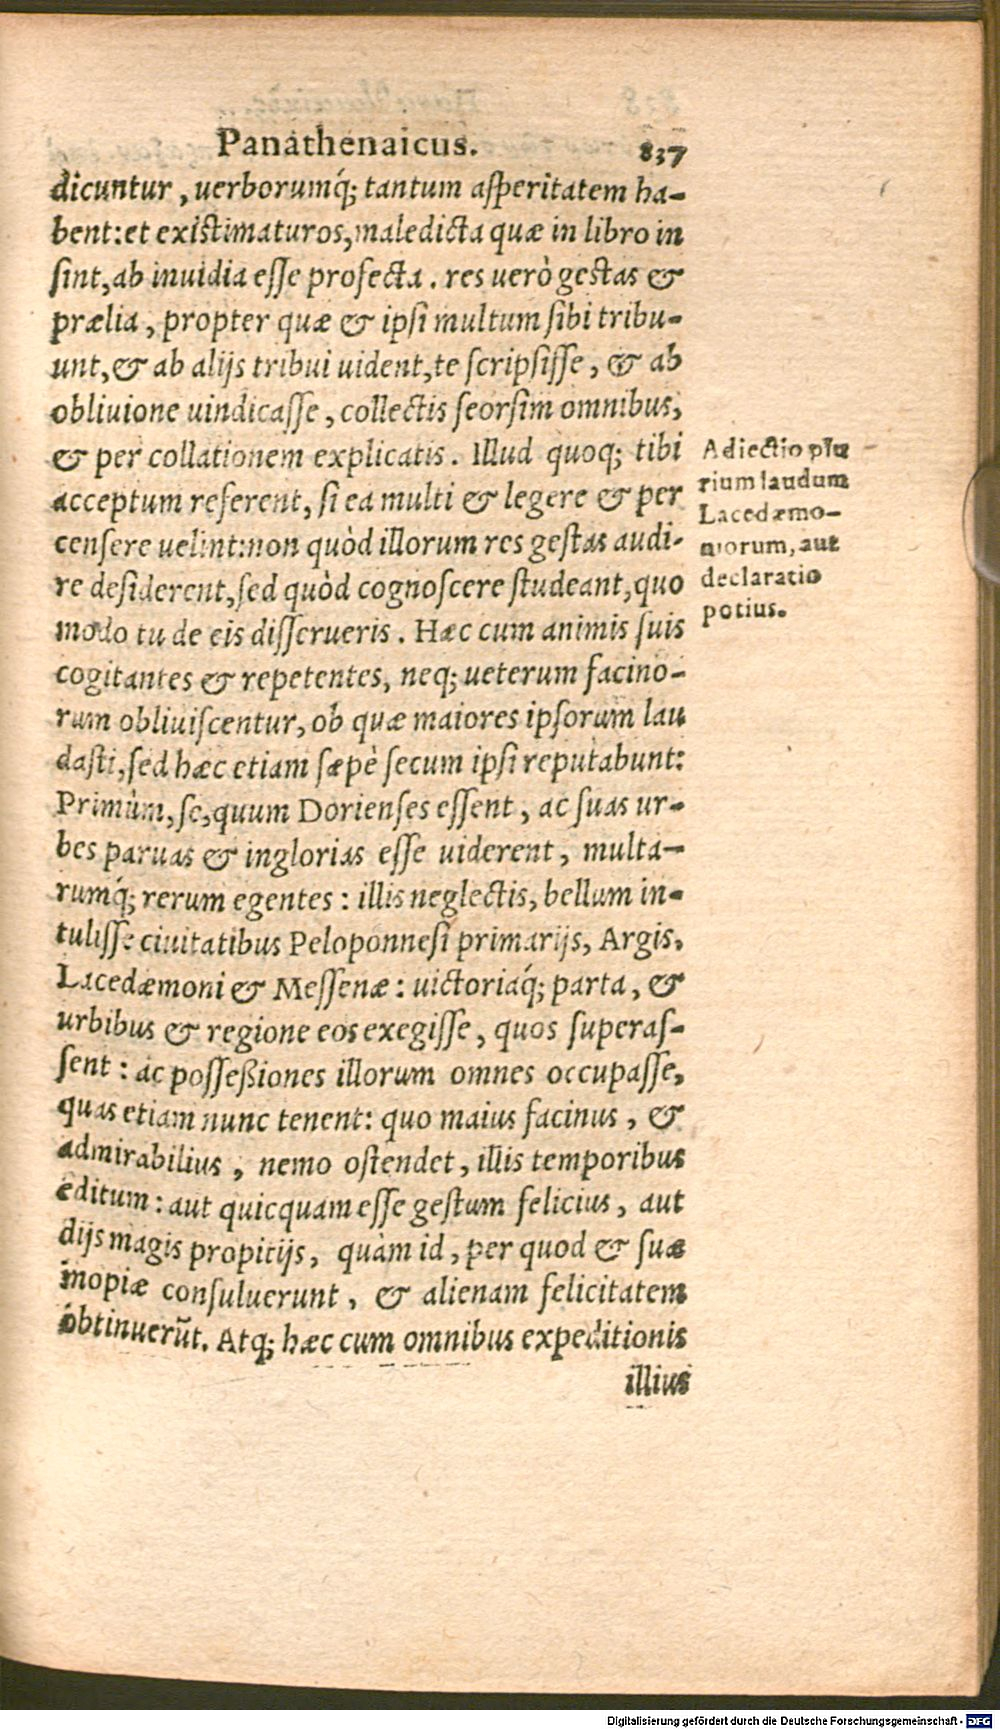 Panathenaicus. 837
dicuntur, uerborumq́; tantum asperitatem ha-
bent: et existimaturos, maledicta quæ in libro in
sint, ab inuidia esse profecta. res uerò gestas &
prælia, propter quæ & ipsi multum sibi tribu-
unt, & ab alijs tribui uident, te scripsisse, & ab
obliuione uindicasse, collectis seorsim omnibus,
& per collationem explicatis. Illud quoq; tibi
acceptum referent, si ea multi & legere & per
censere uelint: non quòd illorum res gestas audi-
re desiderent, sed quòd cognoscere studeant, quo
modo tu de eis disserueris. Hæc cum animis suis
cogitantes & repetentes, neq; ueterum facino-
rum obliuiscentur, ob quæ maiores ipsorum lau
dasti, sed hæc etiam sæpè secum ipsi reputabunt:
Primùm, se, quum Dorienses essent, ac suas ur-
bes paruas & inglorias esse uiderent, multa-
rumq́; rerum egentes: illis neglectis, bellum in-
tulisse ciuitatibus Peloponnesi primarijs, Argis,
Lacedæmoni & Messenæ: uictoriaq́; parta, &
urbibus & regione eos exegisse, quos superas-
sent: ac posseßiones illorum omnes occupasse,
quas etiam nunc tenent: quo maius facinus, &
admirabilius, nemo ostendet, illis temporibus
editum: aut quicquam esse gestum felicius, aut
dijs magis propitijs, quàm id, per quod & suæ
inopiæ consuluerunt, & alienam felicitatem
obtinuerūt. Atq; hæc cum omnibus expeditionis
illius
Adiectio plu
rium laudum
Lacedæmo-
niorum, aut
declaratio
potius.
Digitalisierung gefördert durch die Deutsche Forschungsgemeinschaft - DFG